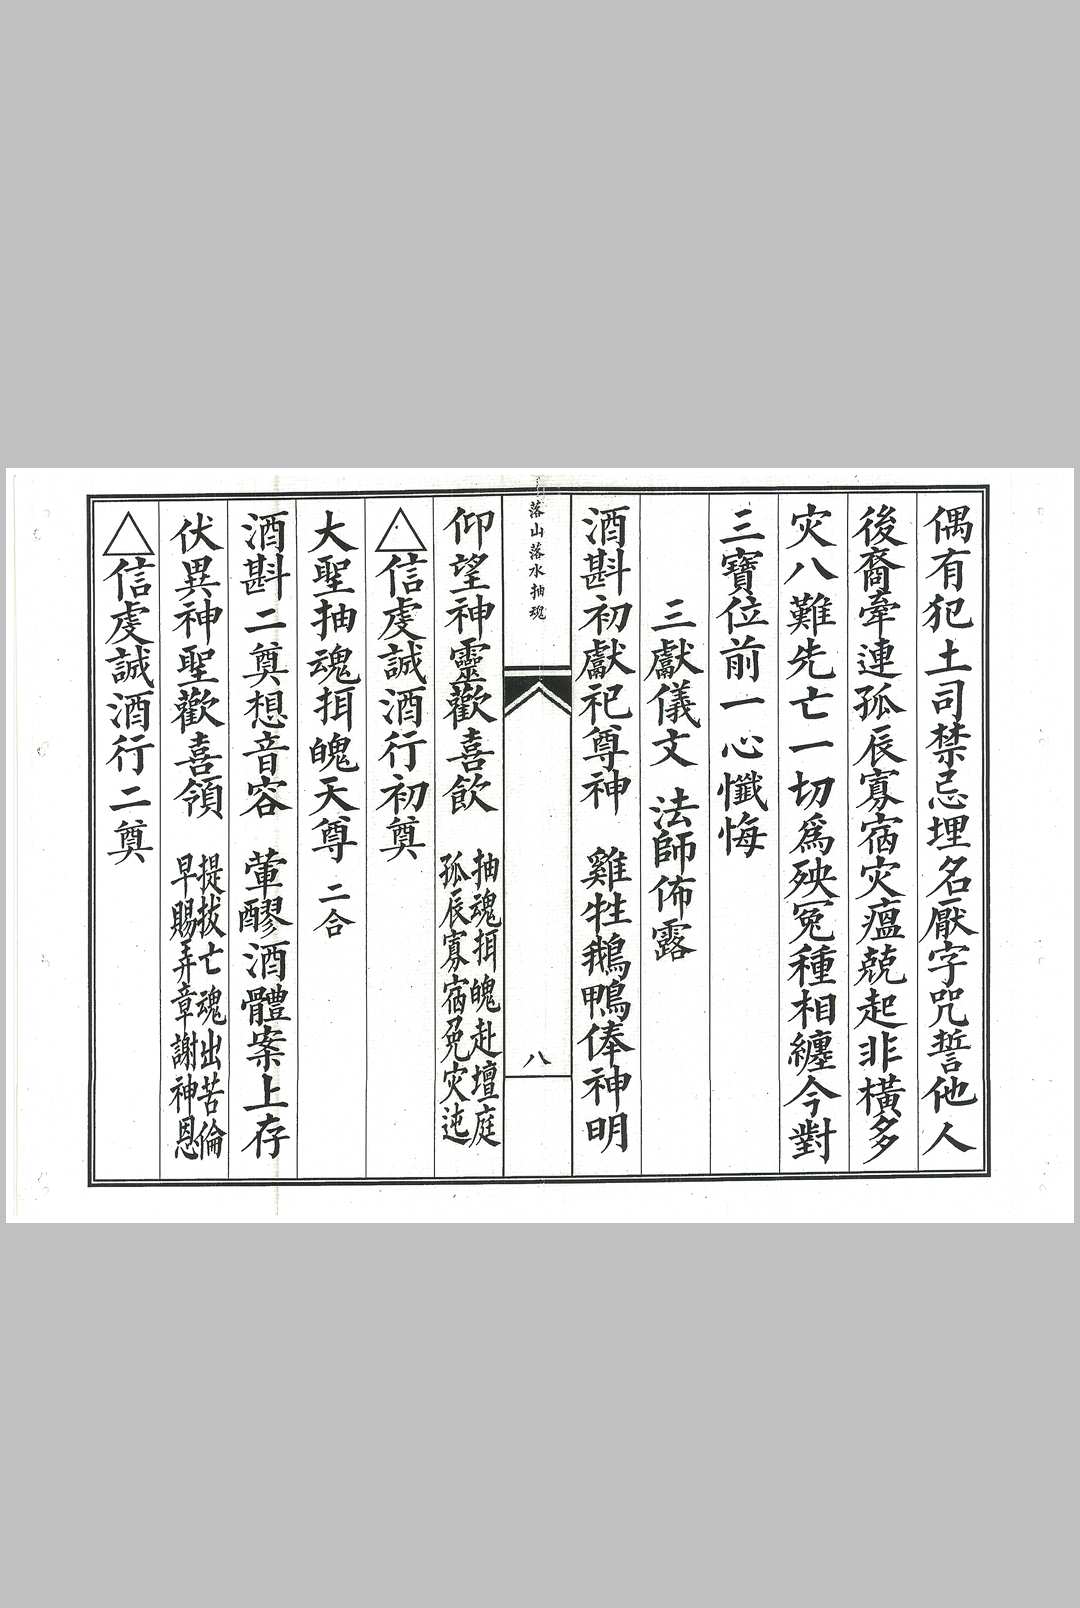 偶有犯土司禁忌埋名厭字咒誓他人
後裔牽連孤辰寡宿灾瘟兢起非橫多
灾八難先亡一切為殃冤種相纏今對
三寶位前一心懺悔
三獻儀文 法師佈露
酒斟初獻祀尊神 雞牲鵝鴨俸神明
落山落水抽魂
八
仰望神靈歡喜飲 抽魂挕魄赴壇庭
孤辰寡宿免灾迍
△信虔誠酒行初奠
大聖抽魂挕魄天尊 二合
酒斟二奠想音容 葷醪酒體案上存
伏異神聖歡喜領 提拔亡魂出苦倫
早賜弄章謝神恩
△信虔誠酒行二奠